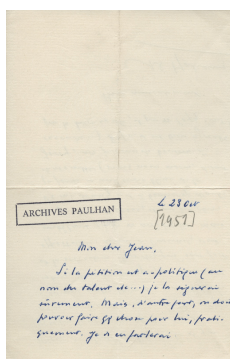 ARCHIVES PAULHAN
Le 23 Oct
[1951]
Mon cher Jean,
Si la petition est apolitique (au
nom du talent de ...) je la signerai
sûrement. Mais, d'autre part, on doit
pouvoir faire qq chose pour lui, prati-
quement. Je t'en parlerai